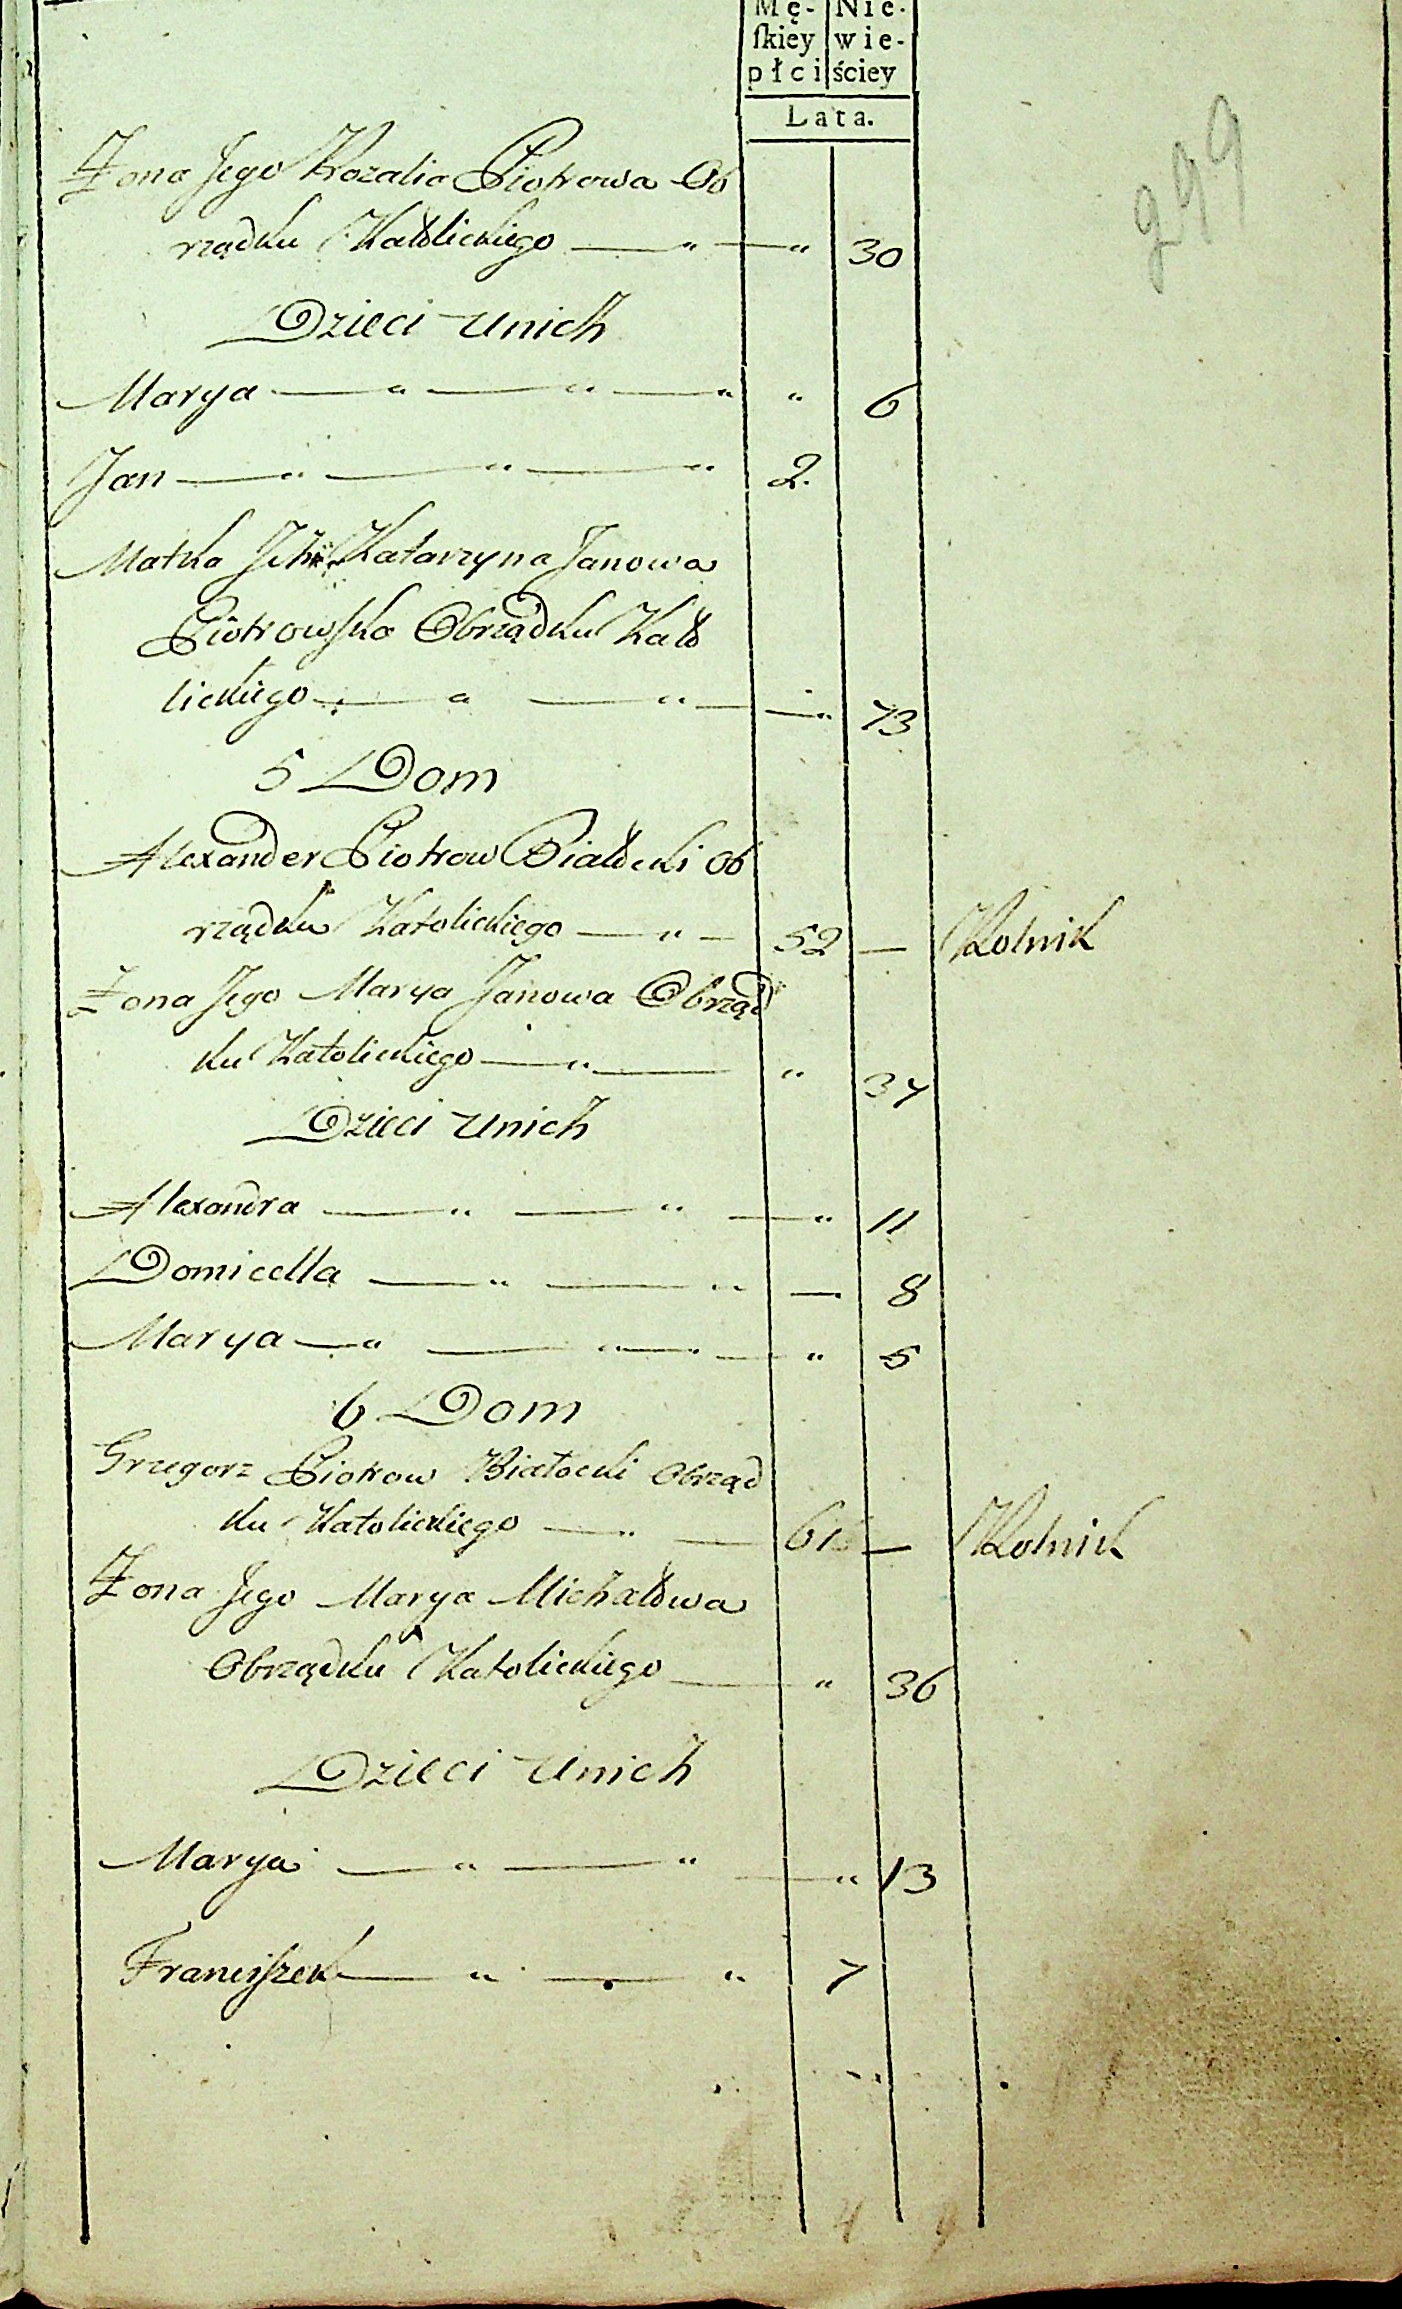 Mę- Nie-
ſkiey wie-
płci ściey
Lata.
299
Żona Jego Rozalia Piotrowa Ob
rządku Katolickiego — " — " 30
Dzieci u nich
Marya — " — " — " " 6
Jan — " — " — " 2.
Matka Katarzyna Janowa
Piotrowska Obrządku Kato
lickiego — " — " — " 73
5 Dom
Alexander Piotrow Białocki Ob
rządku Katolickiego — " — 52 — Rolnik
Żona Jego Marya Janowa Obrząd
ku Katolickiego — " — " 37
Dzieci u nich
Alexandra — " — " — " 11
Domicella — " — " — 8
Marya — " — " — " 5
6 Dom
Grzegorz Piotrow Białocki Obrząd
ku Katolickiego — " — 61 — Rolnik
Żona Jego Marya Michałowa
Obrządku Katolickiego — " 36
Dzieci u nich
Marya — " — " — " 13
Franciſzek — " — " 7
4 9